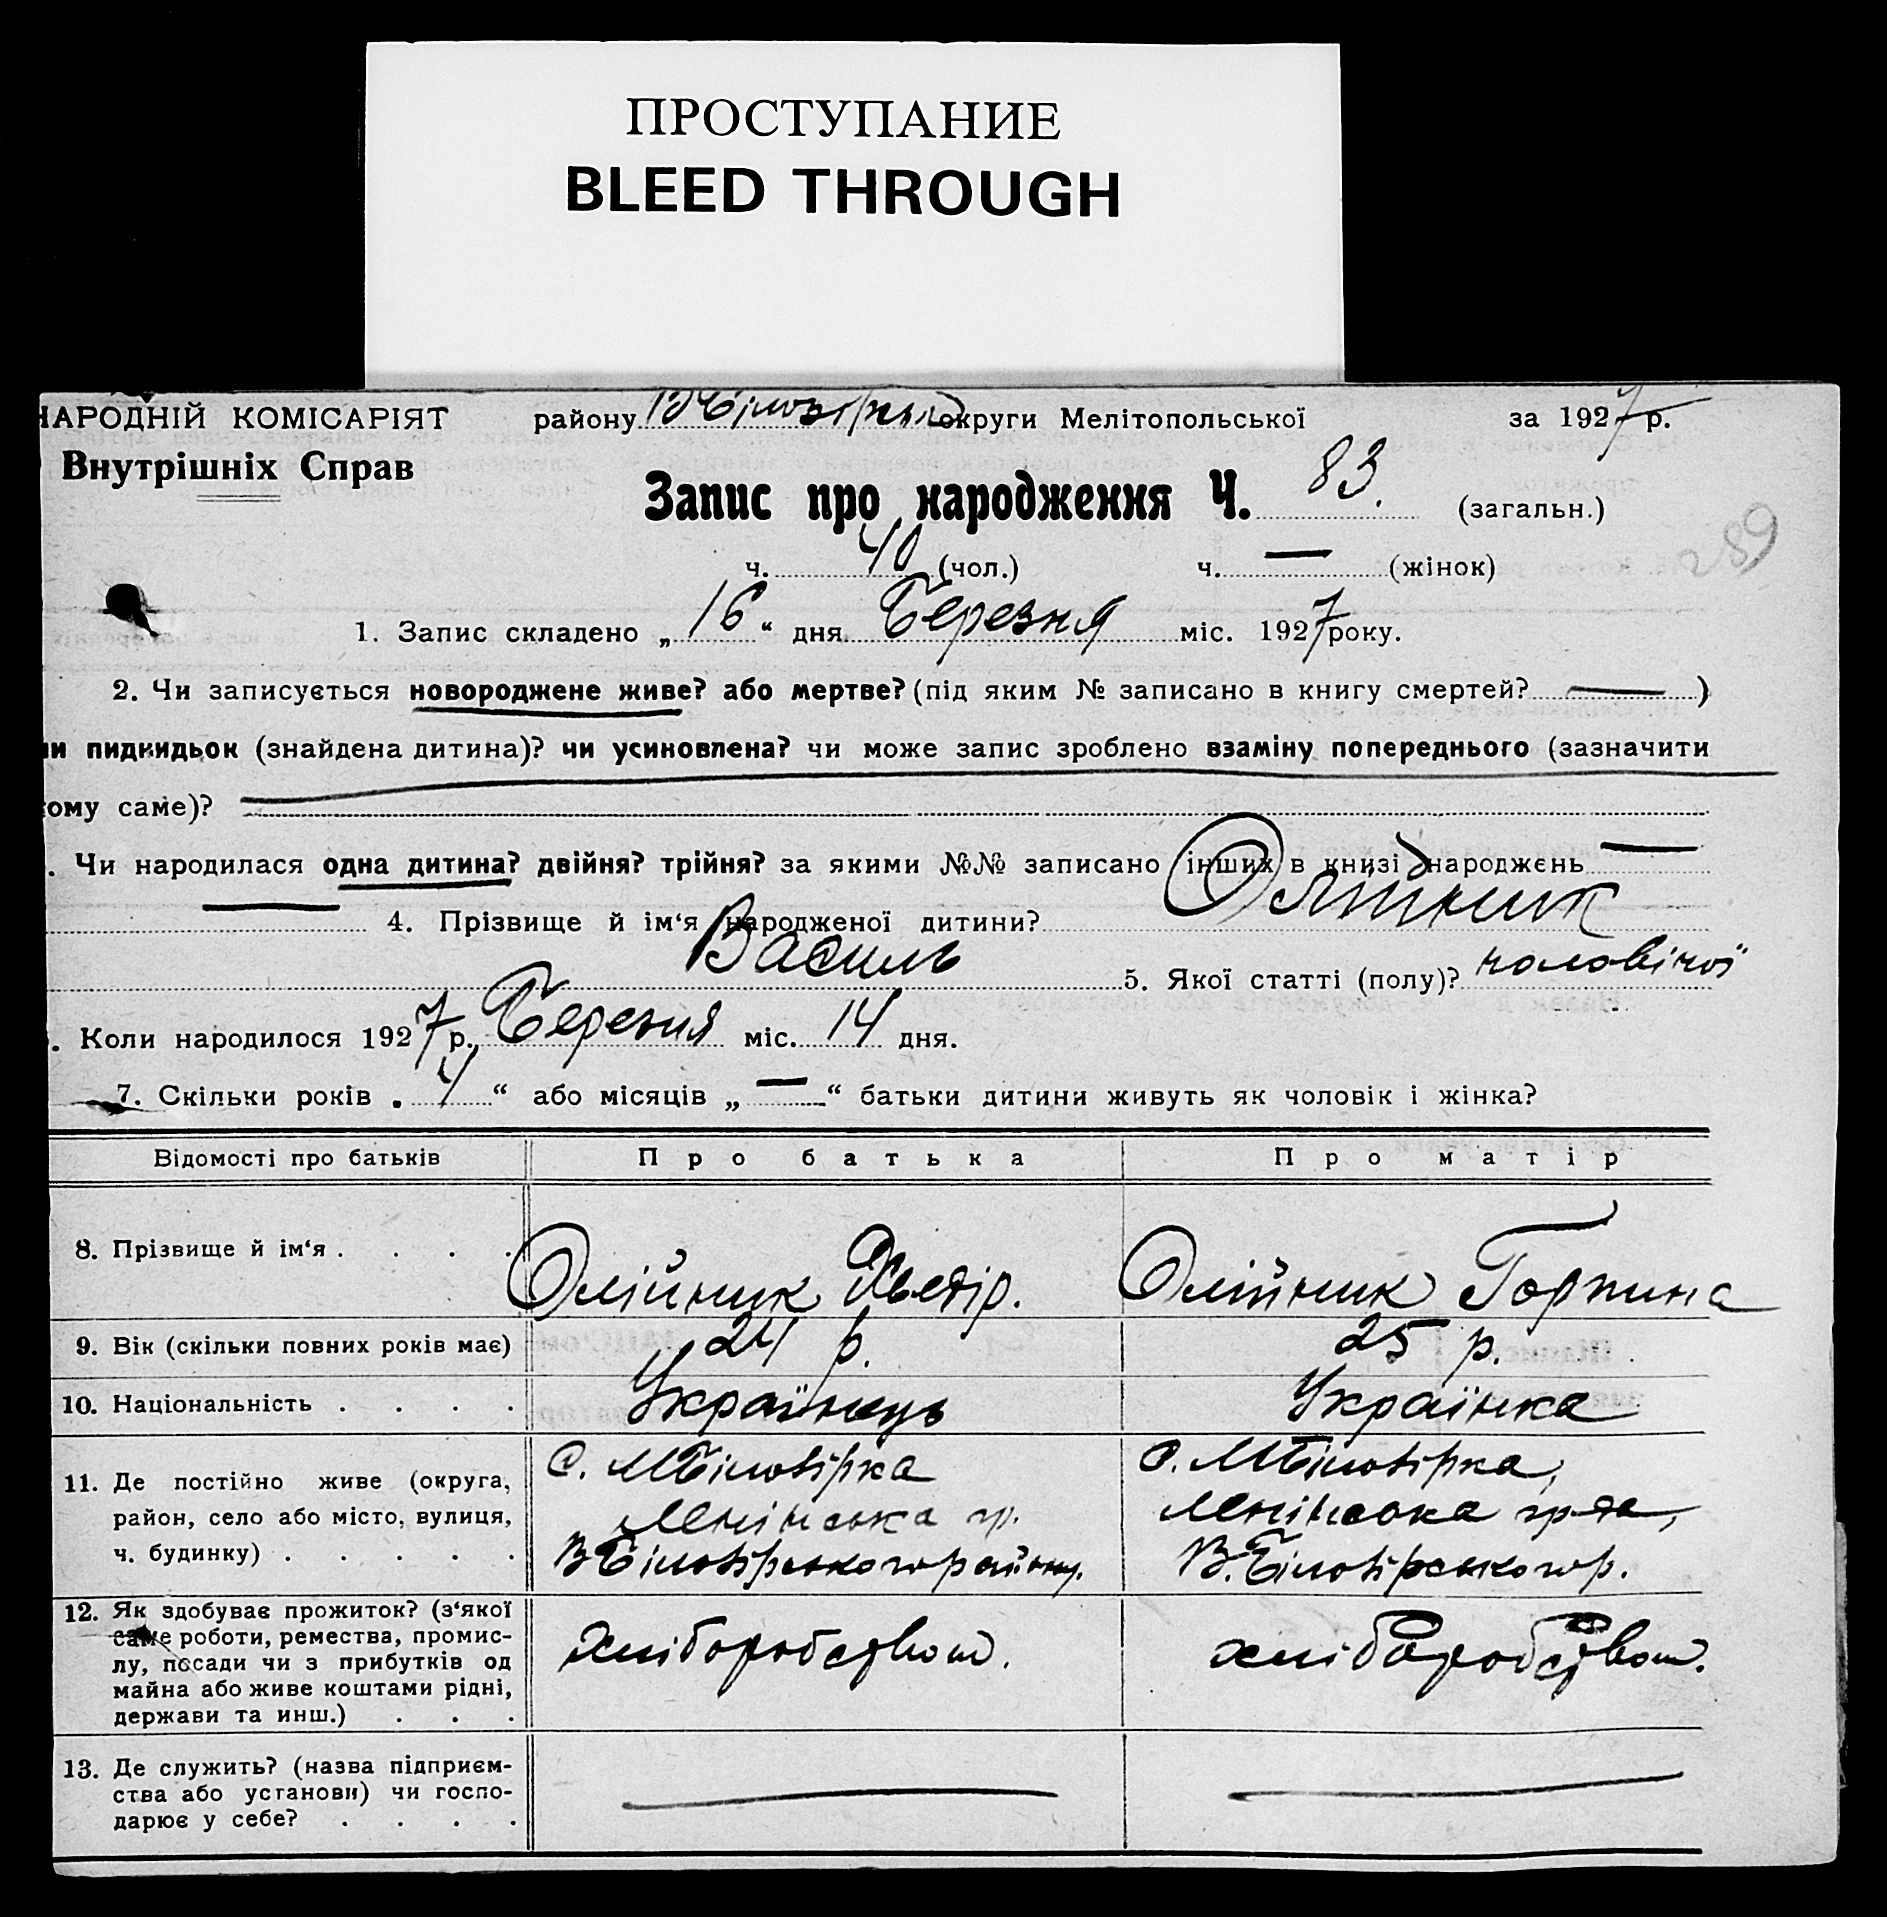 ПРОСТУПАНИЕ
BLEED THROUGH
НАРОДНІЙ КОМІСАРІЯТ району округи Мелітопольської за 1927 р.
Внутрішніх Справ
Запис про народження Ч. 83. (загальн.)
289
ч. 40 (чол.) ч. — (жінок)
1. Запис складено „16“ дня Березня міс. 1927 року.
2. Чи записується новороджене живе? або мертве? (під яким № записано в книгу смертей? — )
чи пидкидьок (знайдена дитина)? чи усиновлена? чи може запис зроблено взаміну попереднього (зазначити
кому саме)?
. Чи народилася одна дитина? двійня? трійня? за якими №№ записано інших в книзі народжень —
— 4. Прізвище й ім‘я народженої дитини? Олійник
Василь 5. Якої статті (полу)? чоловічої
. Коли народилося 1927 р. Березня міс. 14 дня.
7. Скільки років „4“ або місяців „—“ батьки дитини живуть як чоловік і жінка?
Відомості про батьків Про батька Про матір
8. Прізвище й ім‘я . . . . Олійник Хведір. Олійник Горпина
9. Вік (скільки повних років має) 24 р. 25 р.
10. Національність . . . . Українець Українка
11. Де постійно живе (округа, С. МБілозірка С. МБілозірка,
район, село або місто, вулиця, Ленінська гр. Ленінська гр-да,
ч. будинку) . . . . . ВБілозірського району. В.Білозірського р.
12. Як здобуває прожиток? (з‘якої
саме роботи, ремества, промис- Хліборобством. хліборобством.
лу, посади чи з прибутків од
майна або живе коштами рідні,
держави та инш.) . . .
13. Де служить? (назва підприєм-
ства або установи) чи госпо- — —
дарює у себе? . . . .